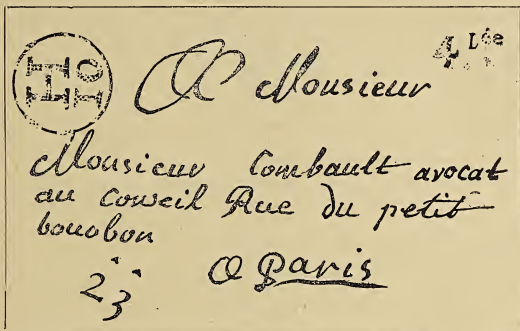 A Monsieur
Monsieur Combault avocat
au conseil Rue du petit
bouobon
23
A Paris